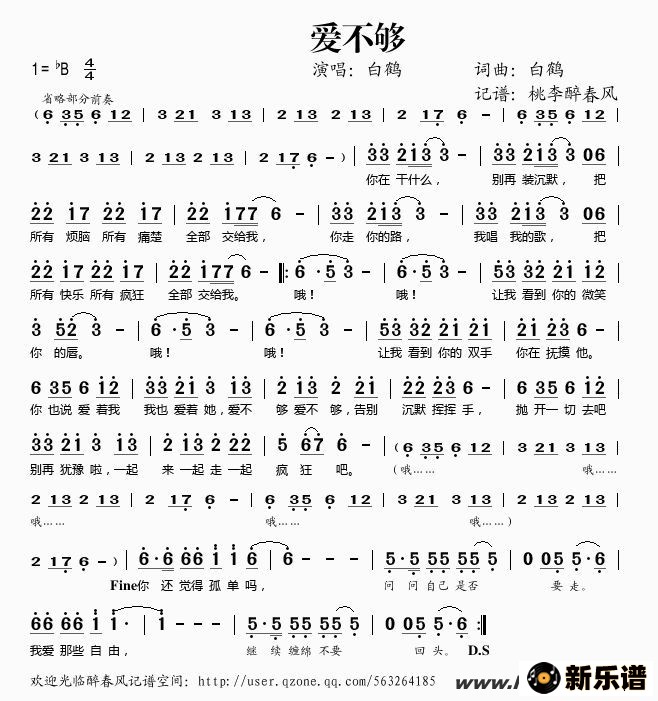 爱不够
1= ♭B 4/4 演唱：白鹤 词曲：白鹤
记谱：桃李醉春风
省略部分前奏
( 6 35 6 12 | 3 21 3 13 | 2 13 2 13 | 2 17 6 - | 6 35 6 12 |
3 21 3 13 | 2 13 2 13 | 2 17 6 - ) | 33 213 3 - | 33 213 3 06 |
你在 干什么， 别再 装沉默， 把
22 17 22 17 | 22 177 6 - | 33 213 3 - | 33 213 3 06 |
所有 烦脑 所有 痛楚 全部 交给我， 你走 你的路， 我唱 我的歌， 把
22 17 22 17 | 22 177 6 - |: 6 · 5 3 - | 6 · 5 3 - | 53 32 21 12 |
所有 快乐 所有 疯狂 全部 交给我。 哦！ 哦！ 让我 看到 你的 微笑
3 52 3 - | 6 · 5 3 - | 6 · 5 3 - | 53 32 21 21 | 21 23 3 - |
你 的唇。 哦！ 哦！ 让我 看到 你的 双手 你在 抚摸 他。
6 35 6 12 | 33 21 3 13 | 2 13 2 21 | 22 23 6 - | 6 35 6 12 |
你 也说 爱 着我 我也 爱着 她，爱不 够 爱不 够，告别 沉默 挥挥 手， 抛 开一 切 去吧
33 21 3 13 | 2 13 22 22 | 5 67 6 - | ( 6 35 6 12 | 3 21 3 13 |
别再 犹豫 啦，一起 来 一起 走 一起 疯 狂 吧。 (哦…… 哦……
2 13 2 13 | 2 17 6 - | 6 35 6 12 | 3 21 3 13 | 2 13 2 13 |
哦…… 哦…… 哦……)
2 17 6 - ) | 6·6 66 1 1 6 | 6 - - - | 5·5 55 55 5 | 0 05 5·6 |
Fine你 还 觉得 孤 单 吗， 问 问 自己 是否 要 走。
66 66 1 1· | 1 - - - | 5·5 55 55 5 | 0 05 5·6 :|
我爱 那些 自 由， 继 续 缠绵 不要 回 头。 D.S
欢迎光临醉春风记谱空间：http://user.qzone.qq.com/563264185
www.
新乐谱